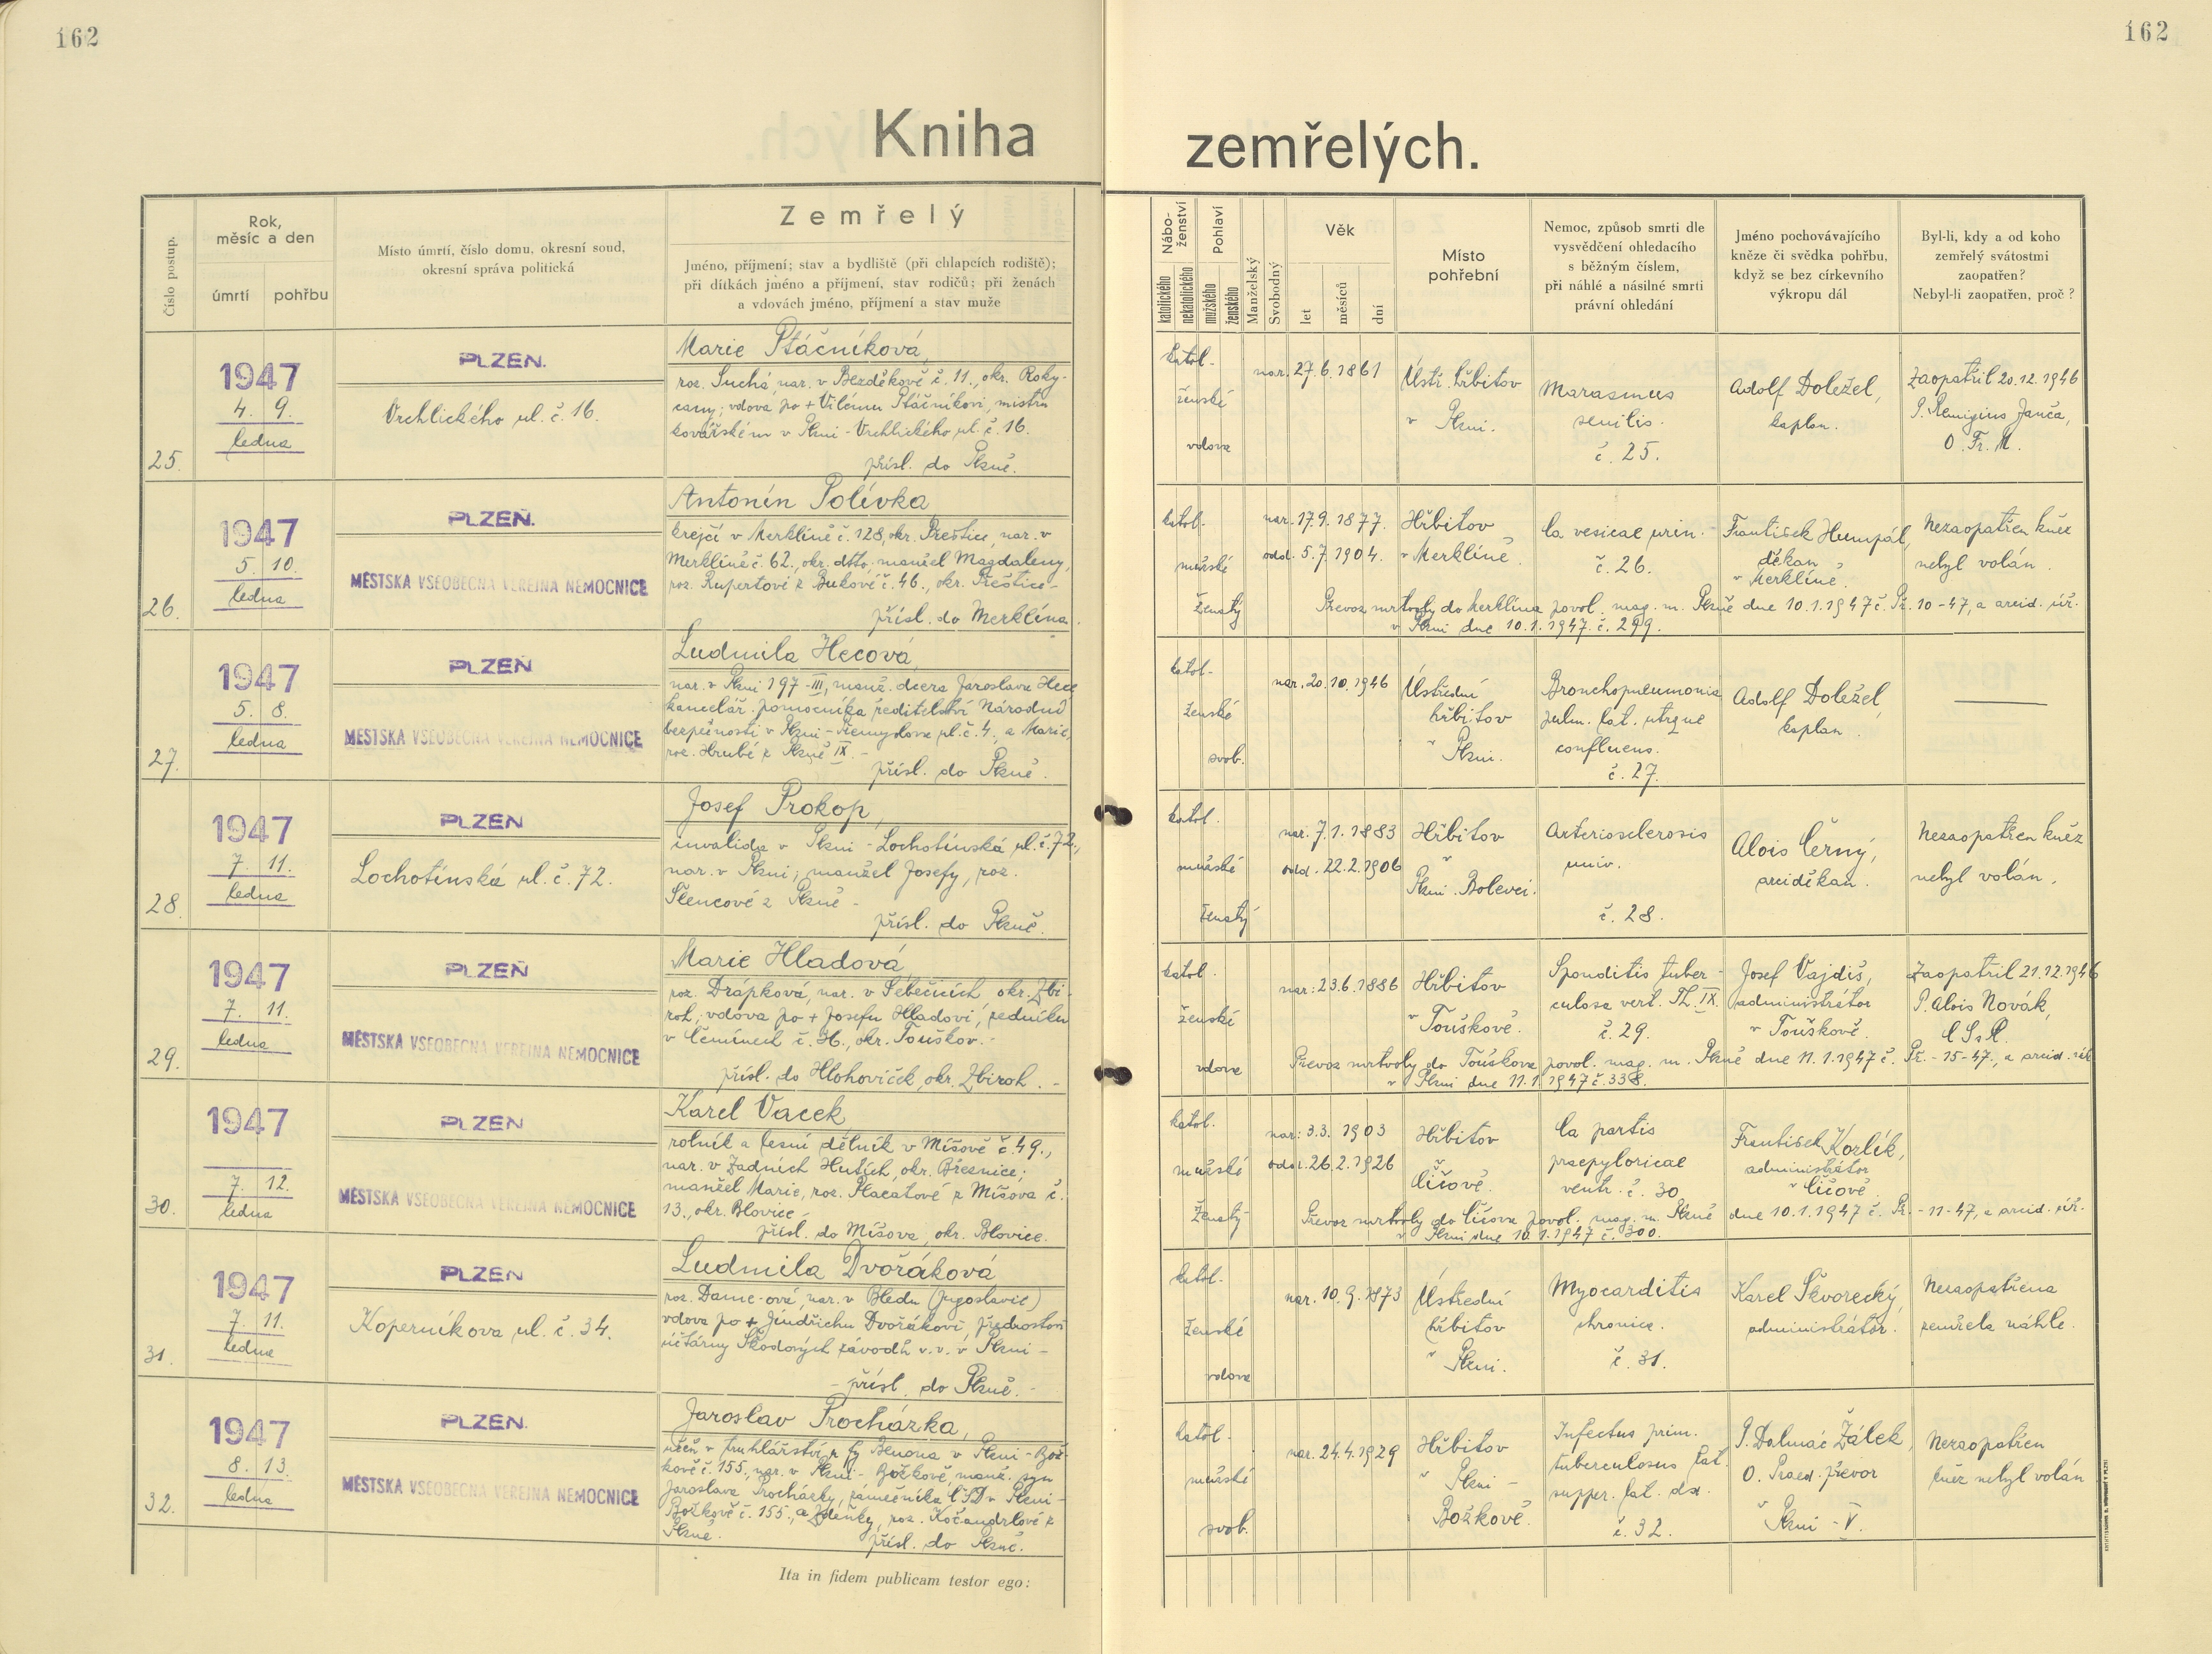 162
162
Kniha
zemřelých.
Číslo postup.
Rok,
měsíc a den
úmrtí
pohřbu
Místo úmrtí, číslo domu, okresní soud,
okresní správa politická
Zemřelý
Jméno, příjmení; stav a bydliště (při chlapcích rodiště);
při dítkách jméno a příjmení, stav rodičů; při ženách
a vdovách jméno, příjmení a stav muže
Nábo-
ženství
katolického
nekatolického
Pohlaví
mužského
ženského
Manželský
Svobodný
Věk
let
měsíců
dní
Místo
pohřební
Nemoc, způsob smrti dle
vysvědčení ohledacího
s běžným číslem,
při náhlé a násilné smrti
právní ohledání
Jméno pochovávajícího
kněze či svědka pohřbu,
když se bez církevního
výkropu dál
Byl-li, kdy a od koho
zemřelý svátostmi
zaopatřen?
Nebyl-li zaopatřen, proč?
25.
1947
4. 9.
ledna
PLZEŇ.
Vrchlického ul. č. 16.
Marie Ptáčníková,
roz. Suchá, nar. v Bezděkově č. 11., okr. Roky-
cany; vdova po + Vilému Ptáčníkovi, mistru
kovářském v Plzni - Vrchlického ul. č. 16.
přísl. do Plzně.
katol.
ženské
vdova
nar. 27. 6. 1861
Ústř. hřbitov
v Plzni.
Marasmus
senilis.
č. 25.
Adolf Doležel,
kaplan.
Zaopatřil 20. 12. 1946
P. Remigius Janča,
O. Fr. M.
26.
1947
5. 10.
ledna
PLZEŇ.
MĚSTSKÁ VŠEOBECNÁ VEŘEJNÁ NEMOCNICE
Antonín Polívka
krejčí v Merklíně č. 128, okr. Přeštice, nar. v
Merklíně č. 62., okr. dtto, manžel Magdaleny,
roz. Rupertové z Bukové č. 46., okr. Přeštice -
přísl. do Merklína.
katol.
mužské
ženatý
nar. 17. 9. 1877.
odd. 5. 7. 1904.
Hřbitov
v Merklíně.
Ca vesicae urin.
č. 26.
František Humpál,
děkan
v Merklíně.
Nezaopatřen kněz
nebyl volán.
Převoz mrtvoly do Merklína povol. mag. m. Plzně dne 10. 1. 1947 č. Př. 10-47, a arcid. úř.
v Plzni dne 10. 1. 1947. č. 299.
27.
1947
5. 8.
ledna
PLZEŇ
MĚSTSKÁ VŠEOBECNÁ VEŘEJNÁ NEMOCNICE
Ludmila Hecová,
nar. v Plzni 197-III, manž. dcera Jaroslava Hece
kancelář. pomocníka ředitelství Národní
bezpečnosti v Plzni - Přemyslova ul. č. 4., a Marie,
roz. Hrubé z Plzně IX. -
přísl. do Plzně.
katol.
ženské
svob.
nar. 20. 10. 1946
Ústřední
hřbitov
v Plzni.
Bronchopneumonia
pulm. lat. utrque
confluens.
č. 27.
Adolf Doležel,
kaplan.
28.
1947
7. 11.
ledna
PLZEŇ
Lochotínská ul. č. 72.
Josef Prokop,
invalida v Plzni - Lochotínská ul. č. 72.,
nar. v Plzni; manžel Josefy, roz.
Šlencové z Plzně -
přísl. do Plzně.
katol.
mužské
ženatý
nar. 7. 1. 1883
odd. 22. 2. 1906
Hřbitov
v
Plzni. Bolevci.
Arteriosclerosis
univ.
č. 28.
Alois Černý,
arciděkan.
Nezaopatřen kněz
nebyl volán.
29.
1947
7. 11.
ledna
PLZEŇ
MĚSTSKÁ VŠEOBECNÁ VEŘEJNÁ NEMOCNICE
Marie Hladová,
roz. Drápková, nar. v Sebečicích, okr. Zbi-
roh; vdova po + Josefu Hladovi, zedníku
v Čemínech č. 36., okr. Touškov. -
přísl. do Hlohoviček, okr. Zbiroh. -
katol.
ženské
vdova
nar: 23. 6. 1886
Hřbitov
v Touškově.
Sponditis tuber-
culosa vert. Th. IX.
č. 29.
Josef Vajdiš,
administrátor
v Touškově.
Zaopatřil 21. 12. 1946
P. Alois Novák,
C. Ss. R.
Převoz mrtvoly do Touškova povol. mag. m. Plzně dne 11. 1. 1947 č. Př. - 15-47., a arcid. úř.
v Plzni dne 11. 1. 1947 č. 338.
30.
1947
7. 12.
ledna
PLZEŇ
MĚSTSKÁ VŠEOBECNÁ VEŘEJNÁ NEMOCNICE
Karel Vacek
rolník a lesní dělník v Míšově č. 49.,
nar. v Zadních Hutích, okr. Březnice;
manžel Marie, roz. Placatové z Míšova č.
13., okr. Blovice -
přísl. do Míšova, okr. Blovice.
katol.
mužské
ženatý
nar: 3. 3. 1903
odd. 26. 2. 1926
Hřbitov
v
Číčově.
Ca partis
praepyloricae
ventr. č. 30
František Korlík,
administrátor
v Číčově.
Převoz mrtvoly do Číčova povol. mag. m. Plzně dne 10. 1. 1947 č. Př. - 11-47, a arcid. úř.
v Plzni dne 10. 1. 1947 č. 300.
31.
1947
7. 11.
ledna
PLZEŇ
Koperníkova ul. č. 34.
Ludmila Dvořáková
roz. Damc-ová, nar. v Bledu (Jugoslavie)
vdova po + Jindřichu Dvořákovi, přednostovi
účtárny Škodových závodů v. v. v Plzni -
- přísl. do Plzně. -
katol.
ženské
vdova
nar. 10. 9. 1873
Ústřední
hřbitov
v Plzni.
Myocarditis
chronica.
č. 31.
Karel Škvorecký,
administrátor.
Nezaopatřena
zemřela náhle.
32.
1947
8. 13.
ledna
PLZEŇ.
MĚSTSKÁ VŠEOBECNÁ VEŘEJNÁ NEMOCNICE
Jaroslav Procházka,
učeň v truhlářství z fy Benona v Plzni - Bož-
kově č. 155., nar. v Plzni - Božkově, manž. syn
Jaroslava Procházky, zámečníka ČSD v Plzni -
Božkově č. 155., a Zdeňky, roz. Kočandrlové z
Plzně.
přísl. do Plzně.
katol.
mužské
svob.
nar. 24. 4. 1929
Hřbitov
v Plzni -
Božkově.
Infectus prim.
tuberculosus lat.
supper. lat. dx.
č. 32.
P. Dalmác Žálek,
O. Praed. převor
v Plzni - V.
Nezaopatřen
kněz nebyl volán
Ita in fidem publicam testor ego: